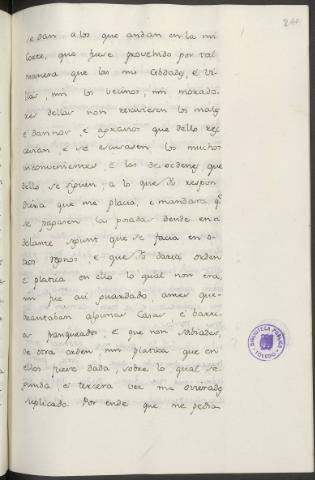 244
se dan a los que andan en la mi
Corte, que fuese provehido por tal
manera que las mis cibdades, e vi-
llas, nin los vecinos, nin morado-
res dellas non reciviesen los males
e dannos, e agravios que dello rec-
evian, e se escusasen los muchos
inconvenientes, e las desordenes que
dello se siguen, a lo que Yo respon-
diera que me placia, e mandara qe
se pagasen las posadas dende en a-
delante segunt que se facia en o-
tros regnos, e que Yo daria orden
e platica en ello lo qual non era
nin fue asi guardado, antes que-
brantaban algunas Casas e barri-
os franqueados e que non sabiades
de otra orden, nin platica que en
ellos fuese dada, sobre lo qual se-
gunda, e tercera vez me ovierades
suplicado. Por ende que me pedia-
BIBLIOTECA PUBLICA
TOLEDO